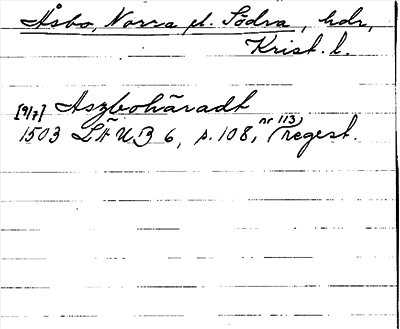 Åsbo, Norra el. Södra, hdr,
Krist. l.
[9/7] Aszbohäradt
1503 LÄUB 6, s. 108, (nr 113) regest.